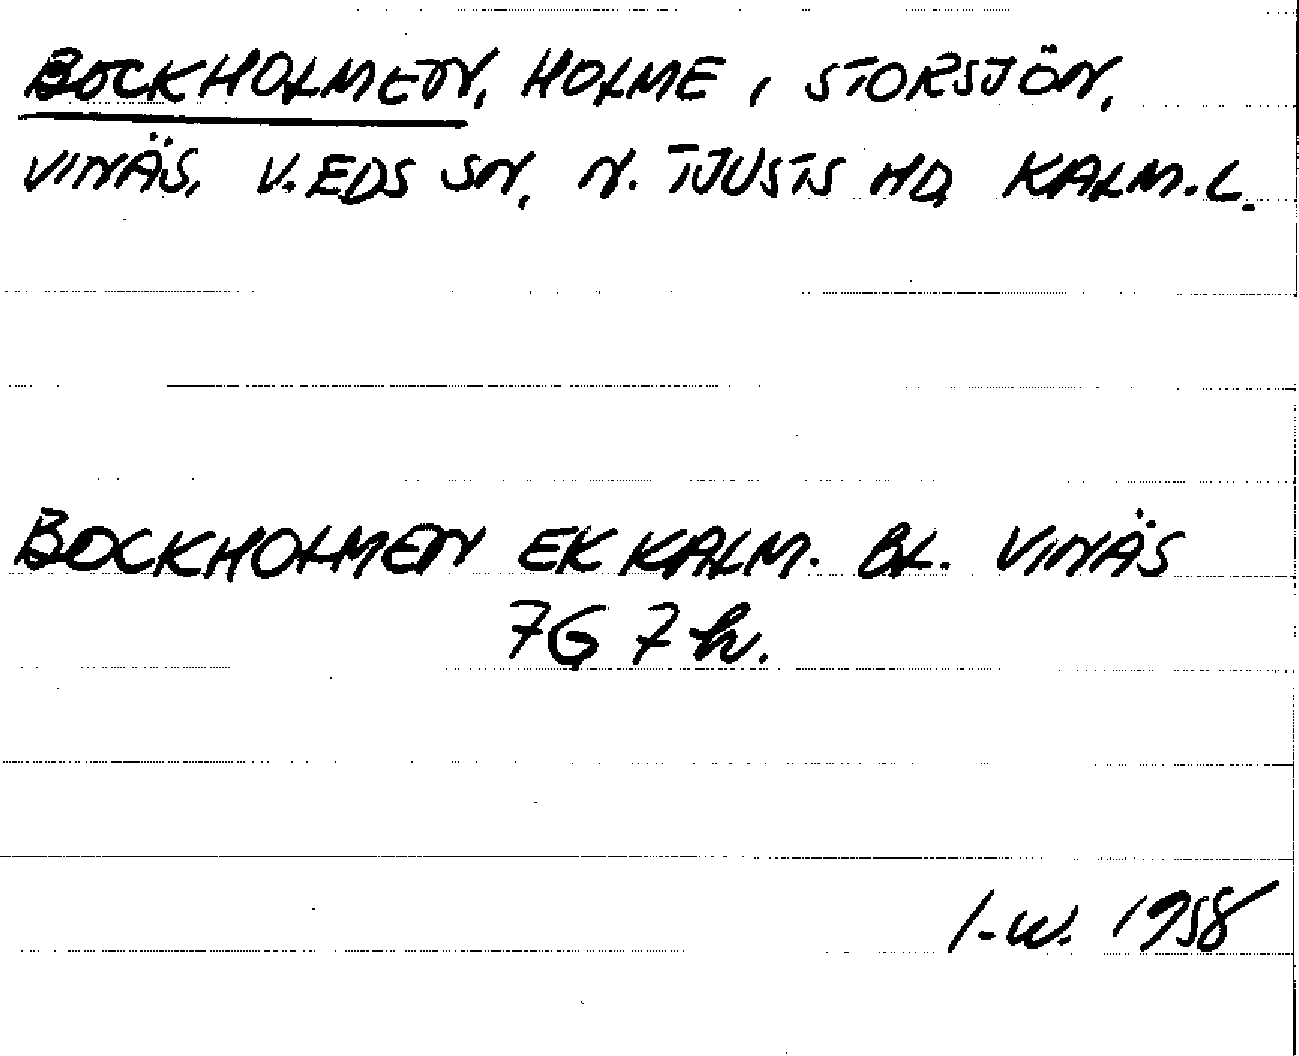 BOCKHOLMEN, HOLME I STORSJÖN,
VINÄS, V. EDS SN, N. TJUSTS HD, KALM. L.
BOCKHOLMEN EK KALM. BL. VINÄS
7G 7h.
I-W. 1958